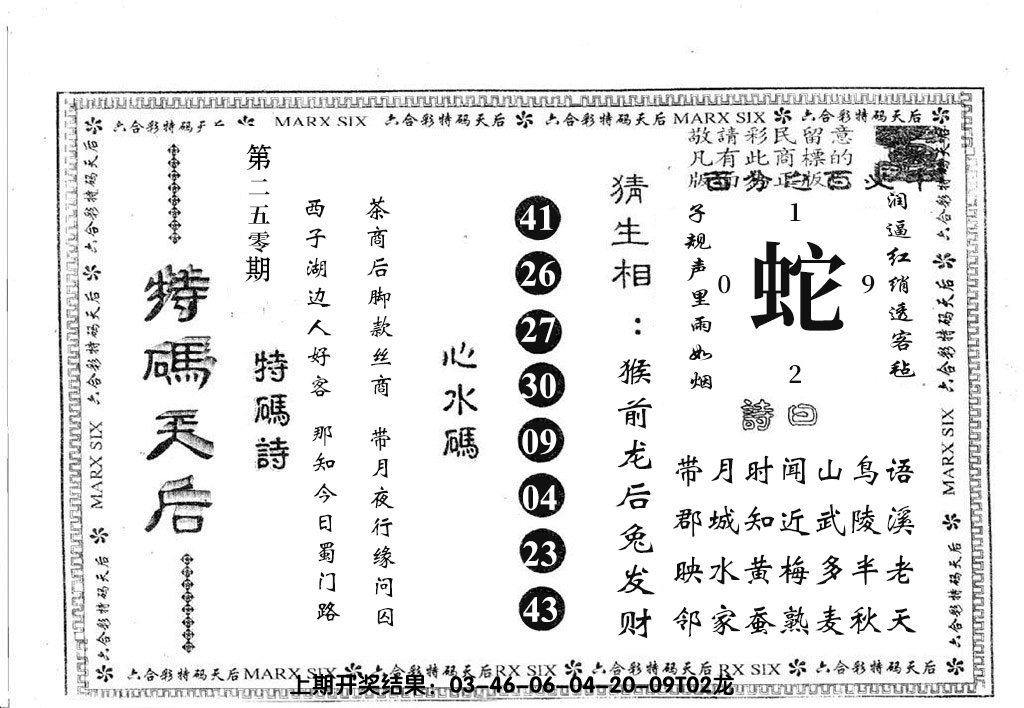 六合彩特码天后 MARX SIX 六合彩特码天后 六合彩特码天后 MARX SIX 六合彩特码天后
敬請彩民留意
凡有此商標的
特碼天后
第二五零期
特碼詩
西子湖边人好客 那知今日蜀门路
茶商后脚款丝商 带月夜行缘问囚
心水碼
41
26
27
30
09
04
23
43
猜生相:猴前龙后兔发财
子规声里雨如烟
润逼红绡透客毡
1
0 蛇 9
2
詩曰
带月时闻山鸟语
郡城知近武陵溪
映水黄梅多半老
邻家蚕熟麦秋天
六合彩特码天后
MARX SIX
六合彩特码天后
六合彩特码天后
MARX SIX
六合彩特码天后
六合彩特码天后 MARX SIX 六合彩特码天后 RX SIX 六合彩特码天后 RX SIX 六合彩特码天后
上期开奖结果：03-46-06-04-20-09T02龙